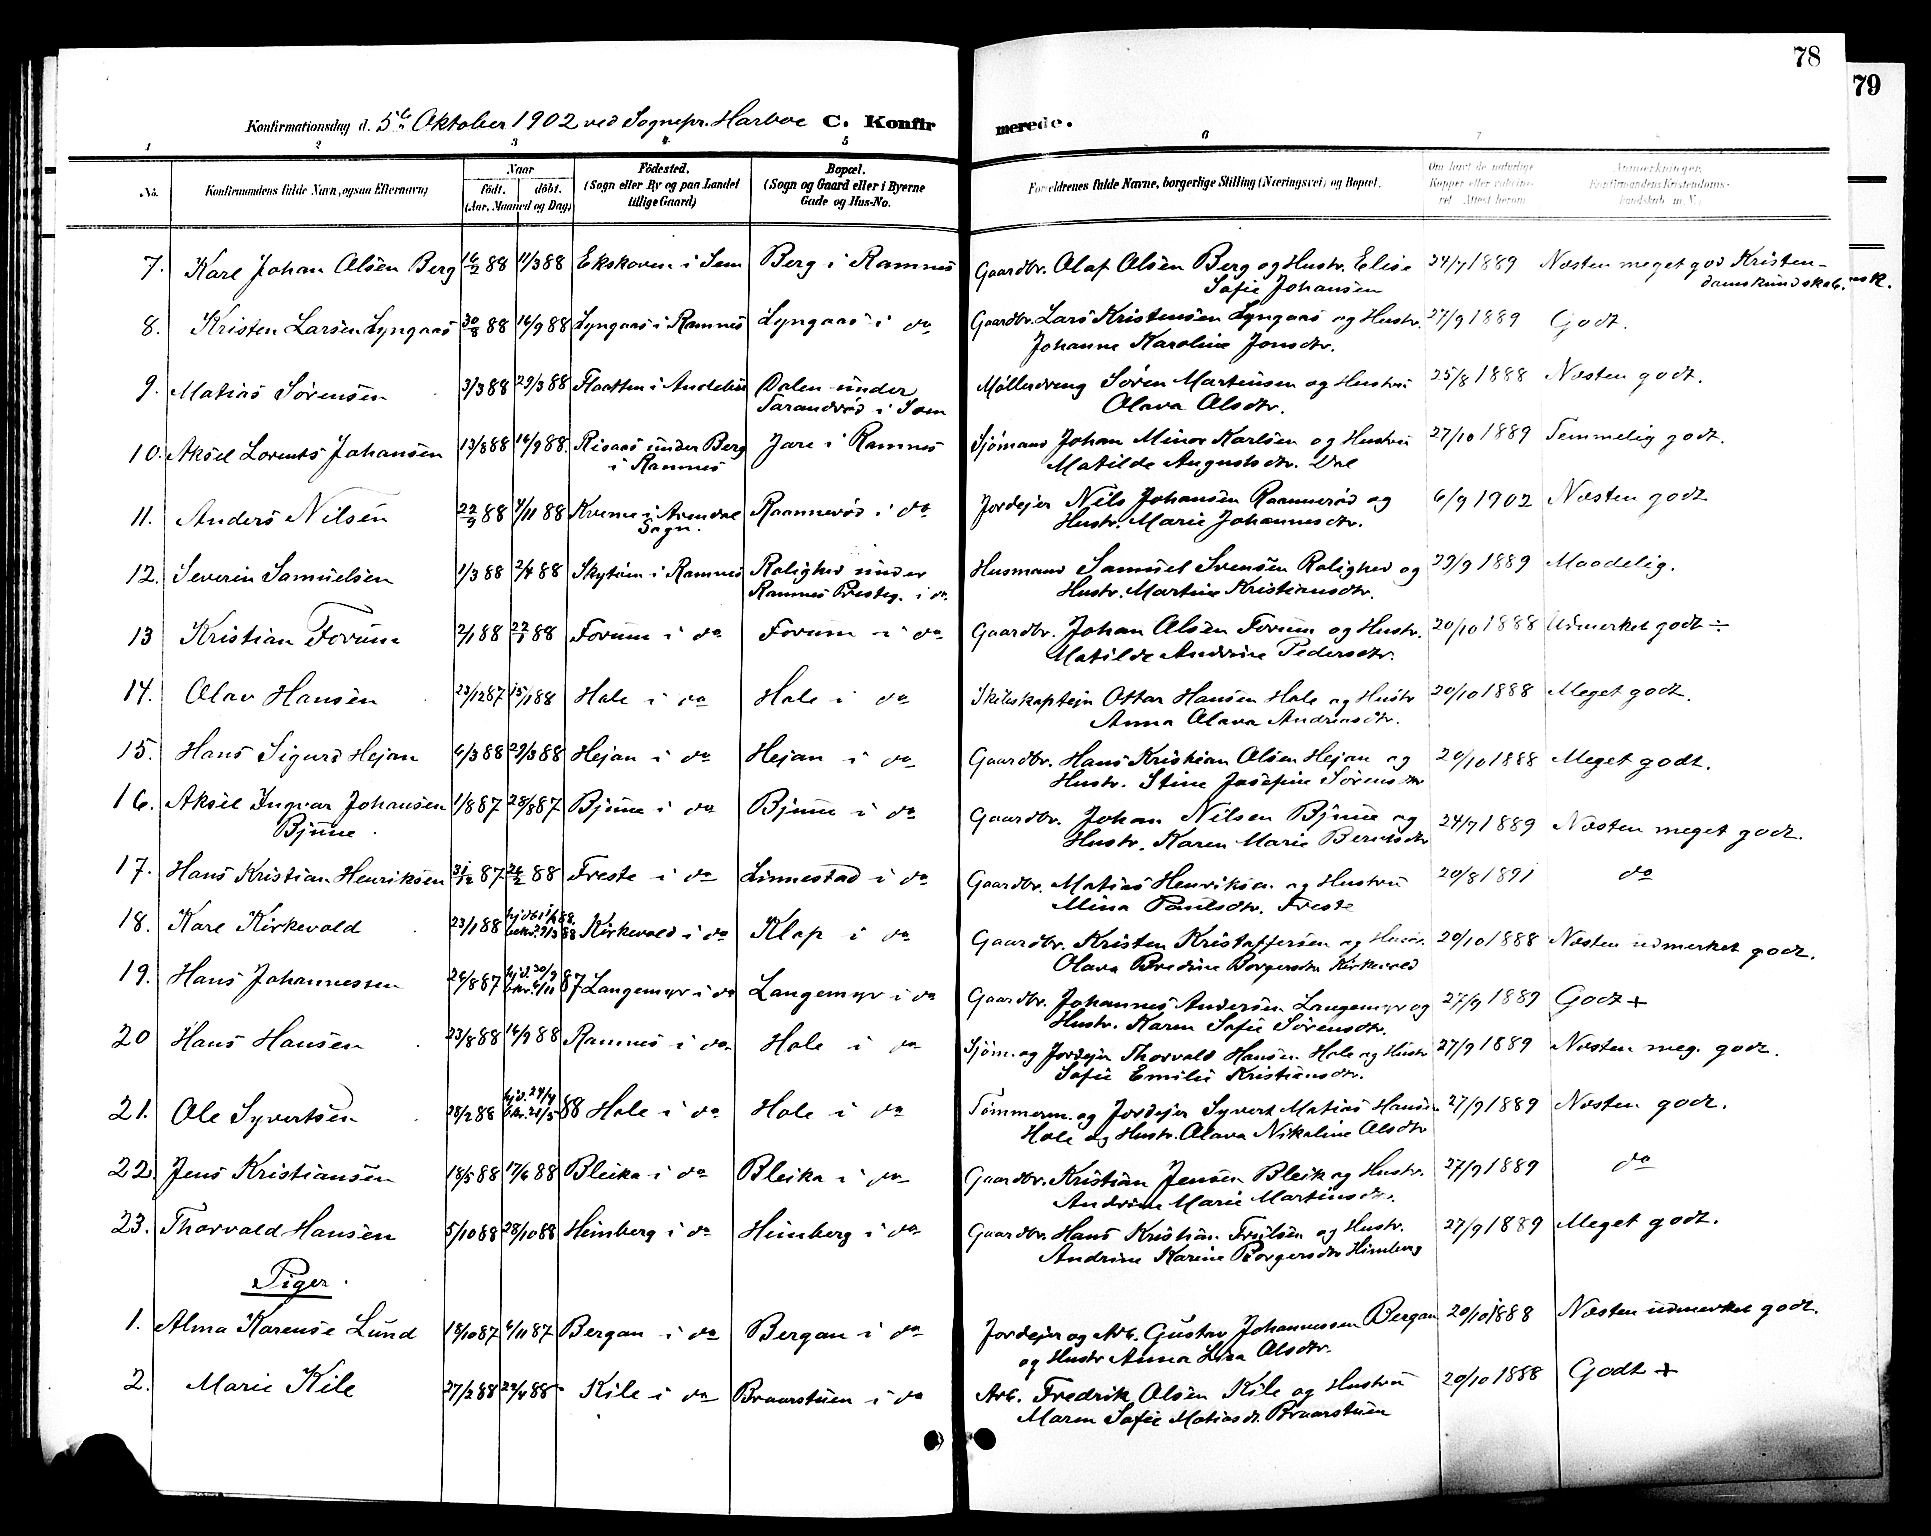 78
79
Konfirmationsdag d. 5te Oktober 1902 ved Sognepr. Harboe C. Konfirmerede.
1 2 3 4 5 6 7
No. Konfirmandens fulde Navn, ogsaa Efternavn) Naar födt. döbt. (Aar, Maaned og Dag) Födested. (Sogn eller By og paa Landet tillige Gaard) Bopæl. (Sogn og Gaard eller i Byerne Gade og Hus-No. Forældrenes fulde Navne, borgerlige Stilling (Næringsvei) og Bopæl. Om havt de naturlige Kopper eller vaccineret. Attest herom Anmerkninger. Konfirmandens Kristendomskundskab m. V.)
7. Karl Johan Olsen Berg 16/2 88 11/3 88 Ekskoven i Sem Berg i Ramnes Gaardbr. Olaf Olsen Berg og Hustr. Elise 24/7 1889 Næsten meget god Kristen-
Sofie Johansen damskundskab.
8. Kristen Larsen Lyngaas 30/8 88 16/9 88 Lyngaas i Ramnes Lyngaas i do Gaardbr. Lars Kristensen Lyngaas og Hustr. 27/9 1889 Godt.
Johanne Karoline Jonsdtr.
9. Matias Sörensen 3/3 88 29/3 88 Flaatten i Andebu Dalen under Möllerdreng Sören Martinsen og Hustru 25/8 1888 Næsten godt.
Tarandröd i Sem Olava Olsdtr.
10. Aksel Lorents Johansen 13/8 88 16/9 88. Risaas under Berg Jare i Ramnes Sjömand Johan Minor Karlsen og Hustru 27/10 1889 Temmelig godt.
i Ramnes Matilde Augustsdtr. Dal
11. Anders Nilsen 22/9 88 4/11 88 Sogn. Raanneröd i do Jordejer Nils Johansen Raanneröd og 6/9 1902 Næsten godt
Hustr. Marie Johannesdtr.
12. Severin Samuelsen 1/3 88 2/4 88 Skytöen i Ramnes Rolighed under Husmand Samuel Svensen Rolighed og 29/9 1889 Maadelig.
Ramnes Presteg. i do. Hustr. Martine Kristiansdtr.
13 Kristian Forum 2/1 88 22/1 88 Forum i do Forum i do Gaardbr. Johan Olsen Forum og Hustr. 20/10 1888 Udmerket godt ÷
Matilde Andrine Pedersdtr.
14. Olav Hansen 23/12 87 15/1 88 Hole i do Hole i do Skibskaptejn Ottar Hansen Hole og Hustr 20/10 1888 Meget godt.
Anna Olava Andreasdtr.
15. Hans Sigurd Hejan 6/3 88 29/3 88 Hejan i do Hejan i do Gaardbr. Hans Kristian Olsen Hejan og 20/10 1888 Meget godt.
Hustr. Stine Josefine Sörensdtr
16. Aksel Ingvar Johansen 1/8 87 28/8 87 Bjune i do Bjune i do Gaardbr. Johan Nilsen Bjune og 24/7 1889 Næsten meget godt.
Bjune. Hustr. Karen Marie Berntsdtr
17. Hans Kristian Henriksen 31/12 87 26/2 88 Freste i do Linnestad i do Gaardbr. Matias Henriksen og Hustru 20/8 1891 do
Mina Paulsdtr. Freste
18. Karl Kirkevold 23/1 88 hjd. bekr. 29/3 88 Kirkevold i do Klop i do Gaardbr. Kristen Kristoffersen og Hustr. 20/10 1888 Næsten udmerket godt.
Olava Bredine Borgersdtr Kirkevold
19. Hans Johannessen 26/8 87 hjd. 30/9 bekr. 6/11 87 Langemyr i do Langemyr i do Gaardbr. Johannes Andersen Langemyr og 27/9 1889 Godt +
Hustr. Karen Sofie Sörensdtr.
20 Hans Hansen 23/8 88 16/9 88 Ramnes i do Hole i do Sjöm. og Jordejer Thorvald Hansen Hole og Hustr 27/9 1889 Næsten meg. godt.
Sofie Emilie Kristiansdtr.
21. Ole Syvertsen 28/2 88 hjd. 24/4 bekr. 21/5 88 Hole i do Hole i do Tömmerm. og Jordejer Syvert Matias Hansen 27/9 1889 Næsten godt.
Hole og Hustr. Olava Nikoline Olsdtr
22. Jens Kristiansen 18/5 88 17/6 88 Bleika i do Bleika i do Gaardbr. Kristian Jensen Bleik og Hustr. 27/9 1889 do
Andrine Marie Martinsdtr.
23. Thorvald Hansen 5/10 88 28/10 88 Heimberg i do Heimberg i do Gaardbr. Hans Kristian Frölsen og Hustr. 27/9 1889 Meget godt.
Andrine Karine Borgersdtr Himberg
Piger.
1. Alma Karense Lund 18/10 87 6/11 87 Bergan i do Bergan i do Jordejer og Arb. Gustav Johannessen Bergan 20/10 1888 Næsten udmerket godt.
og Hustr Anna Lisa Olsdtr.
2. Marie Kile 27/2 88 22/4 88 Kile i do Braarstuen i do Arb. Fredrik Olsen Kile og Hustru 20/10 1888 Godt +
Maren Sofie Matiasdt. Braarstuen